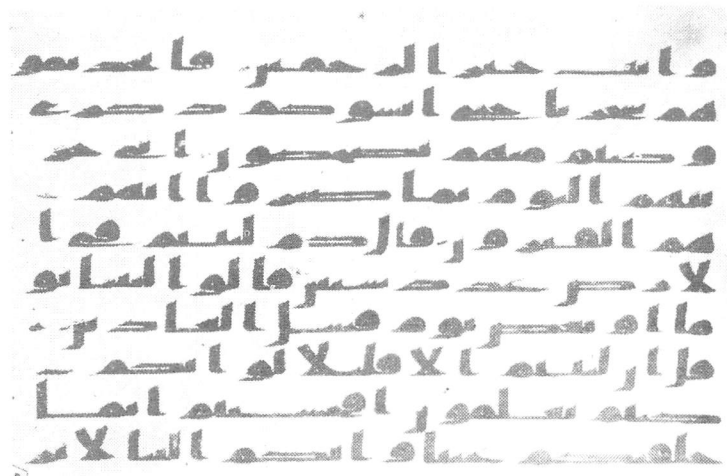 وانت خير الرحمين فاتخذتمو
هم سخريا حتى انسوكم ذكري
وكنتم منهم تضحكون اني جز
يتهم اليوم بما صبروا انهم
هم الفيزون قال كم لبثتم في ا
لارض عدد سنين قالوا لبثنا يو
ما او بعض يوم فسل العادين
قل ان لبثتم الا قليلا لو انكم
كنتم تعلمون افحسبتم انما
خلقنكم عبثا وانكم الينا لا تر